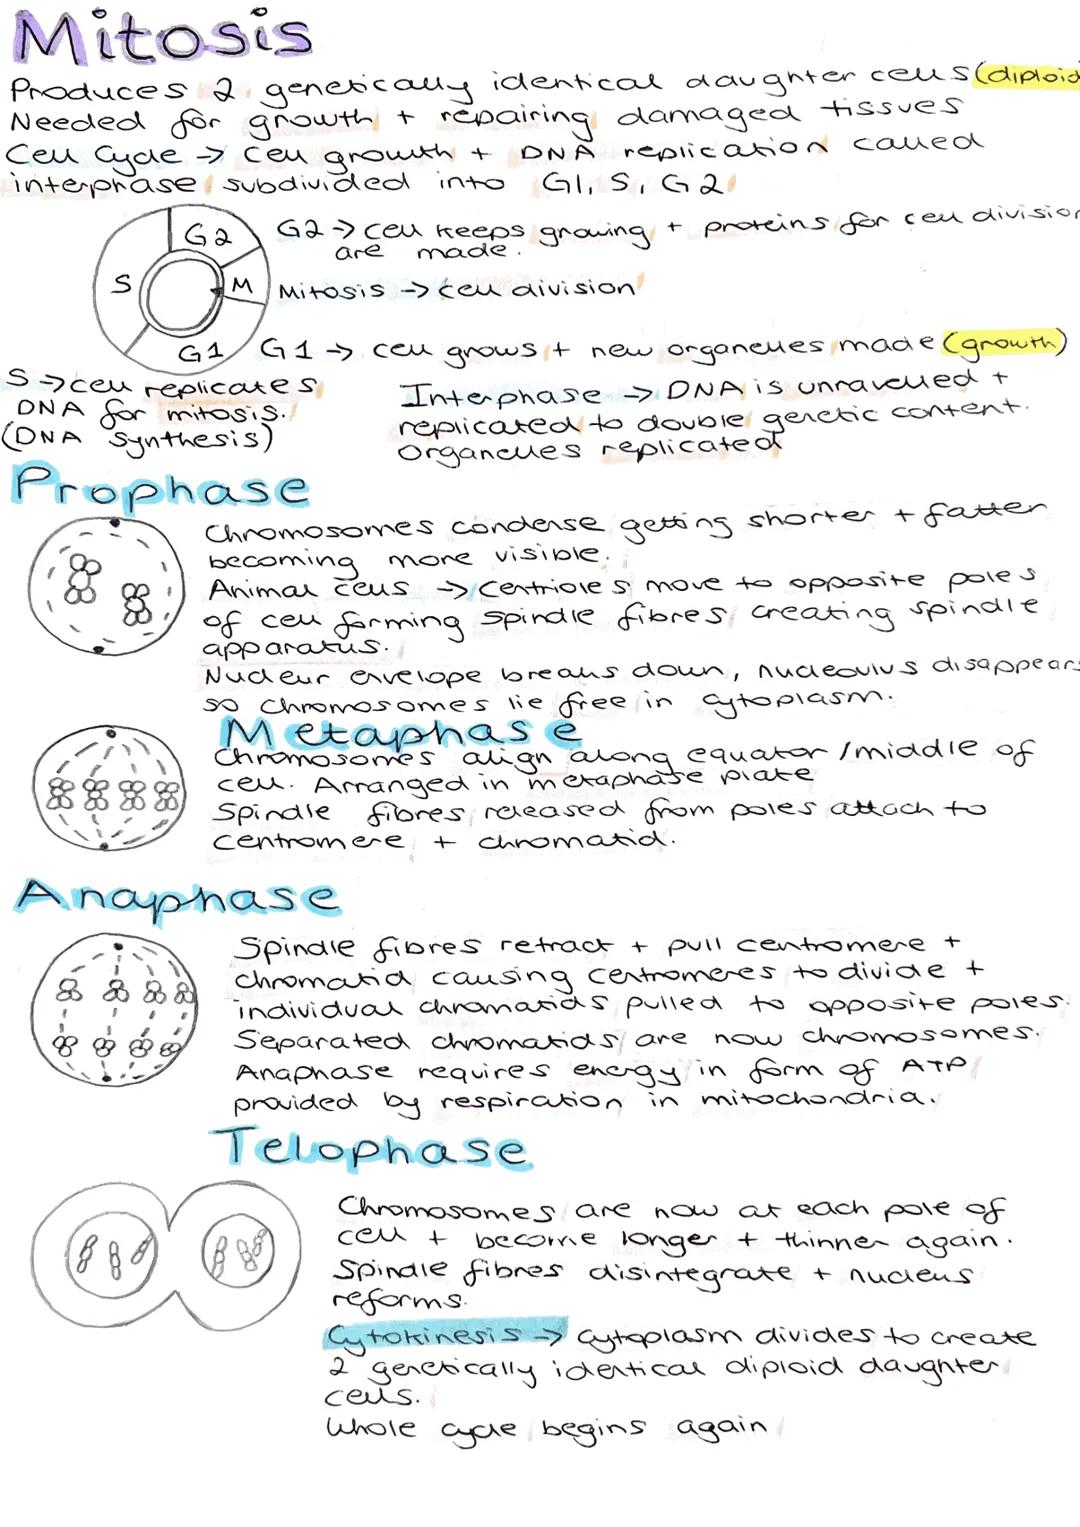 Mitosis
Produces 2 genetically identical daughter cells (diploid
Needed for growth + repairing damaged tissues
Cell Cycle → Cell growth + DNA replication called
interphase subdivided into G1, S, G2
G2
S
M
G1
G2 → cell keeps growing + proteins for cell division
are made.
Mitosis → cell division
G1 → cell grows + new organelles made (growth)
S → cell replicates
DNA for mitosis.
(DNA synthesis)
Interphase → DNA is unravelled +
replicated to double genetic content.
Organelles replicated
Prophase
Chromosomes condense getting shorter + fatter
becoming more visible.
Animal cells → Centrioles move to opposite poles
of cell forming spindle fibres creating spindle
apparatus.
Nucleur envelope breaks down, nucleovlus disappears
so chromosomes lie free in cytoplasm.
Metaphase
Chromosomes align along equator / middle of
cell. Arranged in metaphase plate
Spindle fibres released from poles attach to
centromere + chromatid.
Anaphase
Spindle fibres retract + pull centromere +
chromatid causing centromeres to divide +
individual chromatids pulled to opposite poles.
Separated chromatids are now chromosomes.
Anaphase requires energy in form of ATP
provided by respiration in mitochondria.
Telophase
Chromosomes are now at each pole of
cell + become longer + thinner again.
Spindle fibres disintegrate + nucleus
reforms.
Cytokinesis → cytoplasm divides to create
2 genetically identical diploid daughter
cells.
Whole cycle begins again